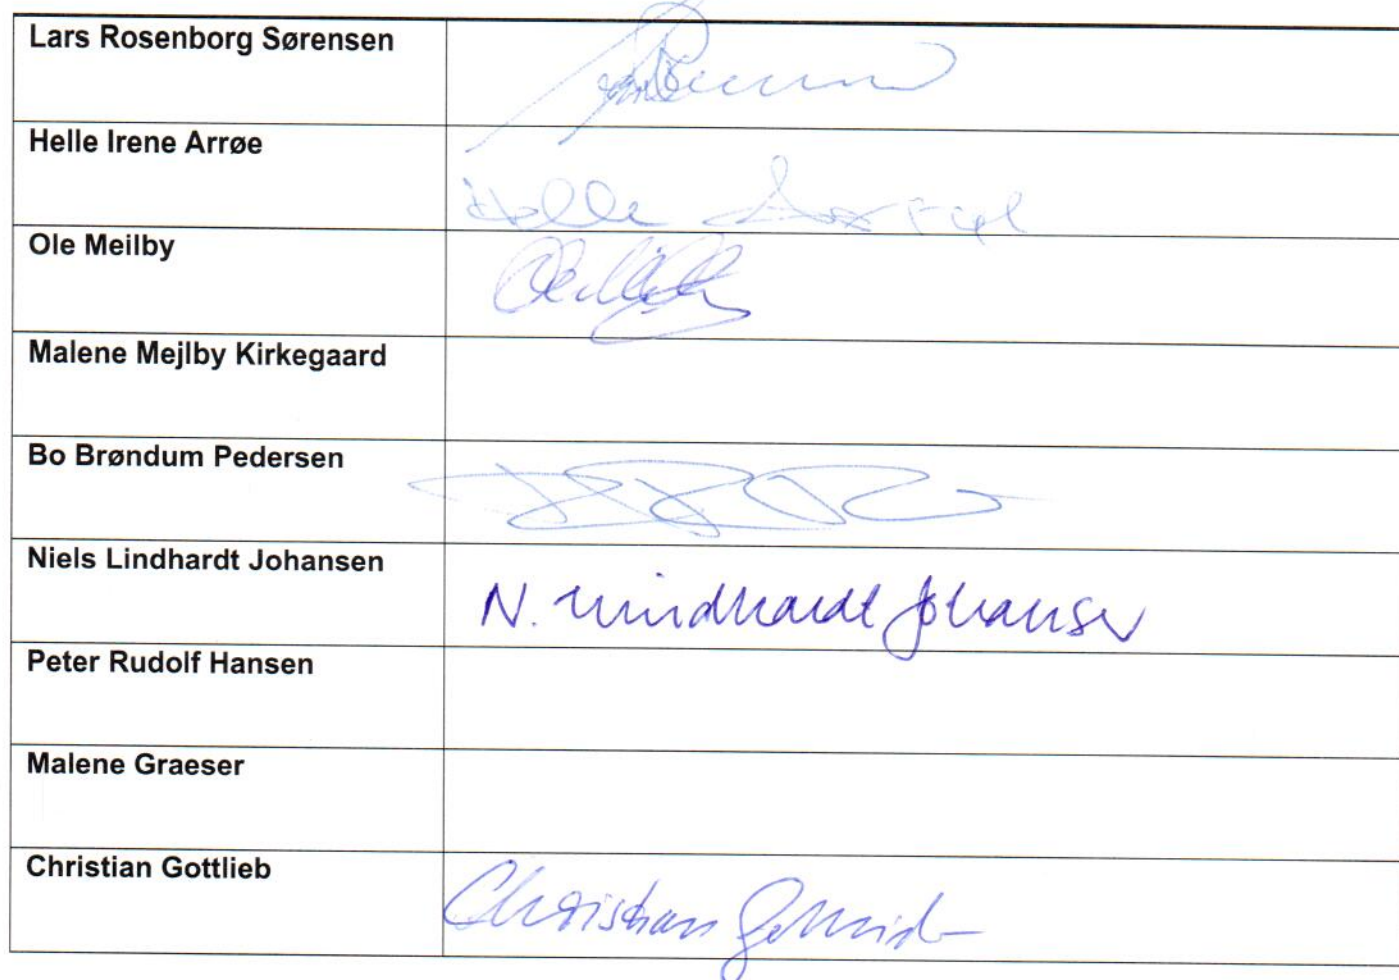 Lars Rosenborg Sørensen
Helle Irene Arrøe
Helle
Ole Meilby
Malene Mejlby Kirkegaard
Bo Brøndum Pedersen
Niels Lindhardt Johansen
N. Lindhardt Johansen
Peter Rudolf Hansen
Malene Graeser
Christian Gottlieb
Christian